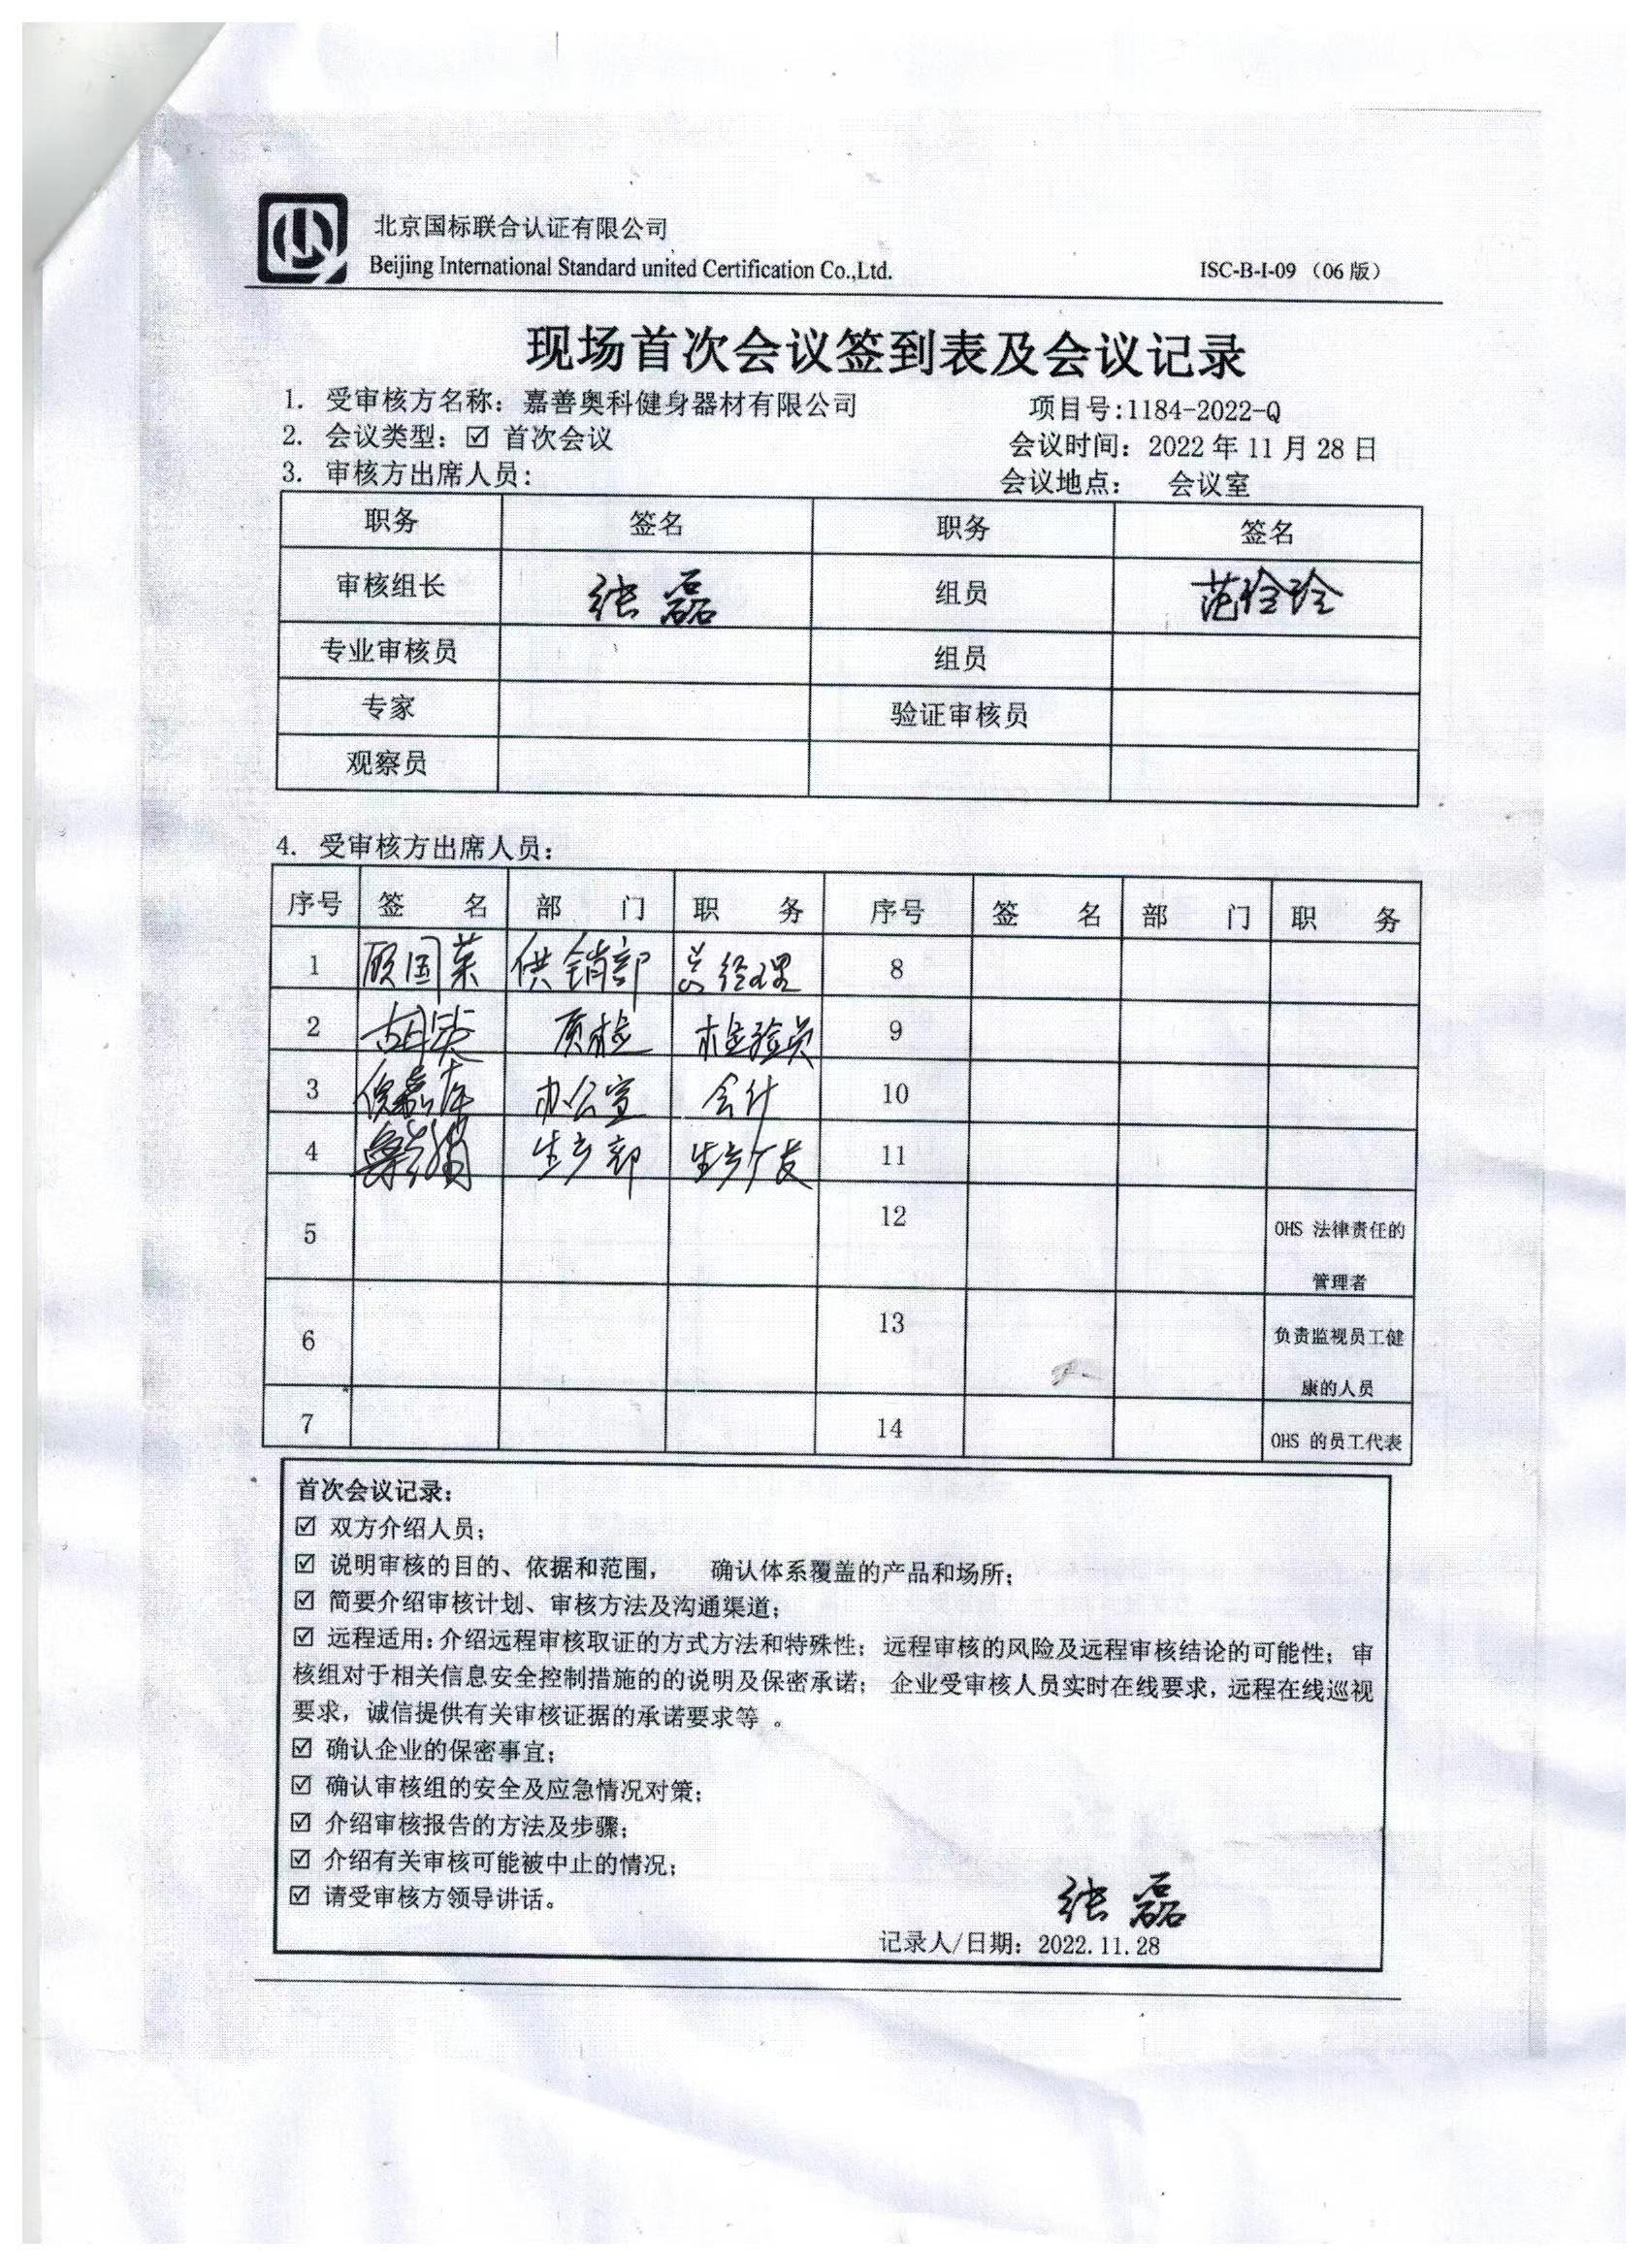 北京国标联合认证有限公司
Beijing International Standard united Certification Co.,Ltd.
ISC-B-I-09 (06版)
现场首次会议签到表及会议记录
1. 受审核方名称：嘉善奥科健身器材有限公司 项目号:1184-2022-Q
2. 会议类型：☑ 首次会议 会议时间：2022年11月28日
3. 审核方出席人员： 会议地点： 会议室
职务 签名 职务 签名
审核组长 张磊 组员 范玲玲
专业审核员 组员
专家 验证审核员
观察员
4. 受审核方出席人员：
序号 签 名 部 门 职 务 序号 签 名 部 门 职 务
1 顾国荣 供销部 总经理 8
2 质检 检验员 9
3 办公室 会计 10
4 生产部 生产厂长 11
5 12 OHS 法律责任的
管理者
6 13 负责监视员工健
康的人员
7 14 OHS 的员工代表
首次会议记录：
☑ 双方介绍人员；
☑ 说明审核的目的、依据和范围， 确认体系覆盖的产品和场所；
☑ 简要介绍审核计划、审核方法及沟通渠道；
☑ 远程适用：介绍远程审核取证的方式方法和特殊性；远程审核的风险及远程审核结论的可能性；审
核组对于相关信息安全控制措施的的说明及保密承诺；企业受审核人员实时在线要求，远程在线巡视
要求，诚信提供有关审核证据的承诺要求等 。
☑ 确认企业的保密事宜；
☑ 确认审核组的安全及应急情况对策；
☑ 介绍审核报告的方法及步骤；
☑ 介绍有关审核可能被中止的情况；
☑ 请受审核方领导讲话。
张磊
记录人/日期：2022.11.28